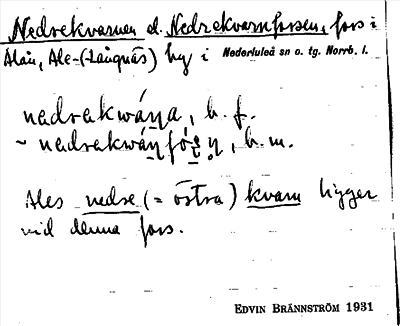 Nedrekvarnen el. Nedrekvarnforsen, fors i
Alån, Ale-(-Långnäs) by i Nederluleå sn o. tg. Norrb. l.
nedrakwáṇa, b. f.
~ nedrakwáṇfó̤ṣṇ, b. m.
Ales nedre (= östra) kvarn ligger
vid denna fors.
EDVIN BRÄNNSTRÖM 1931